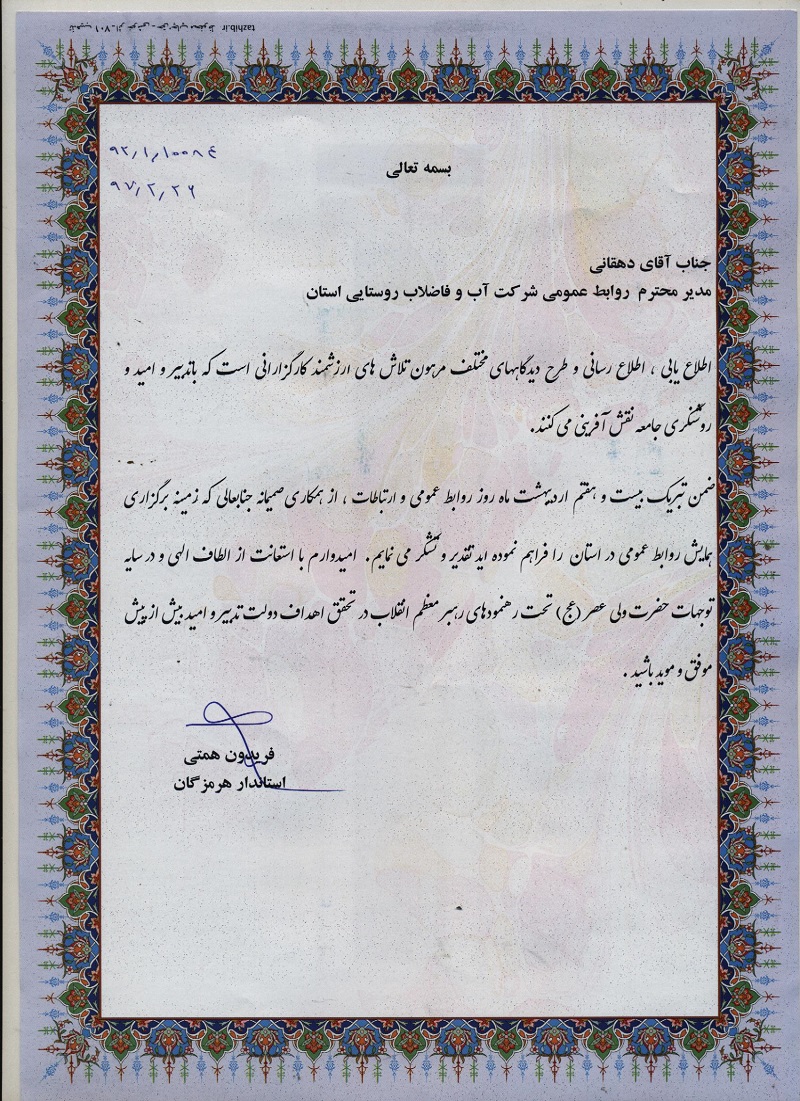 tazhib.ir
۹۲/۱/۱۰۰۸۴
۹۷/۲/۲۶
بسمه تعالی
جناب آقای دهقانی
مدیر محترم روابط عمومی شرکت آب و فاضلاب روستایی استان
اطلاع یابی ، اطلاع رسانی و طرح دیدگاههای مختلف مرهون تلاش های ارزشمند کارگزارانی است که باتدبیر و امید و
روشنگری جامعه نقش آفرینی می کنند.
ضمن تبریک بیست و هفتم اردیبهشت ماه روز روابط عمومی و ارتباطات ، از همکاری صمیمانه جنابعالی که زمینه برگزاری
همایش روابط عمومی در استان را فراهم نموده اید تقدیر و تشکر می نمایم. امیدوارم با استعانت از الطاف الهی و در سایه
توجهات حضرت ولی عصر (عج) تحت رهنمودهای رهبر معظم انقلاب در تحقق اهداف دولت تدبیر و امید بیش از پیش
موفق و موید باشید .
فریدون همتی
استاندار هرمزگان